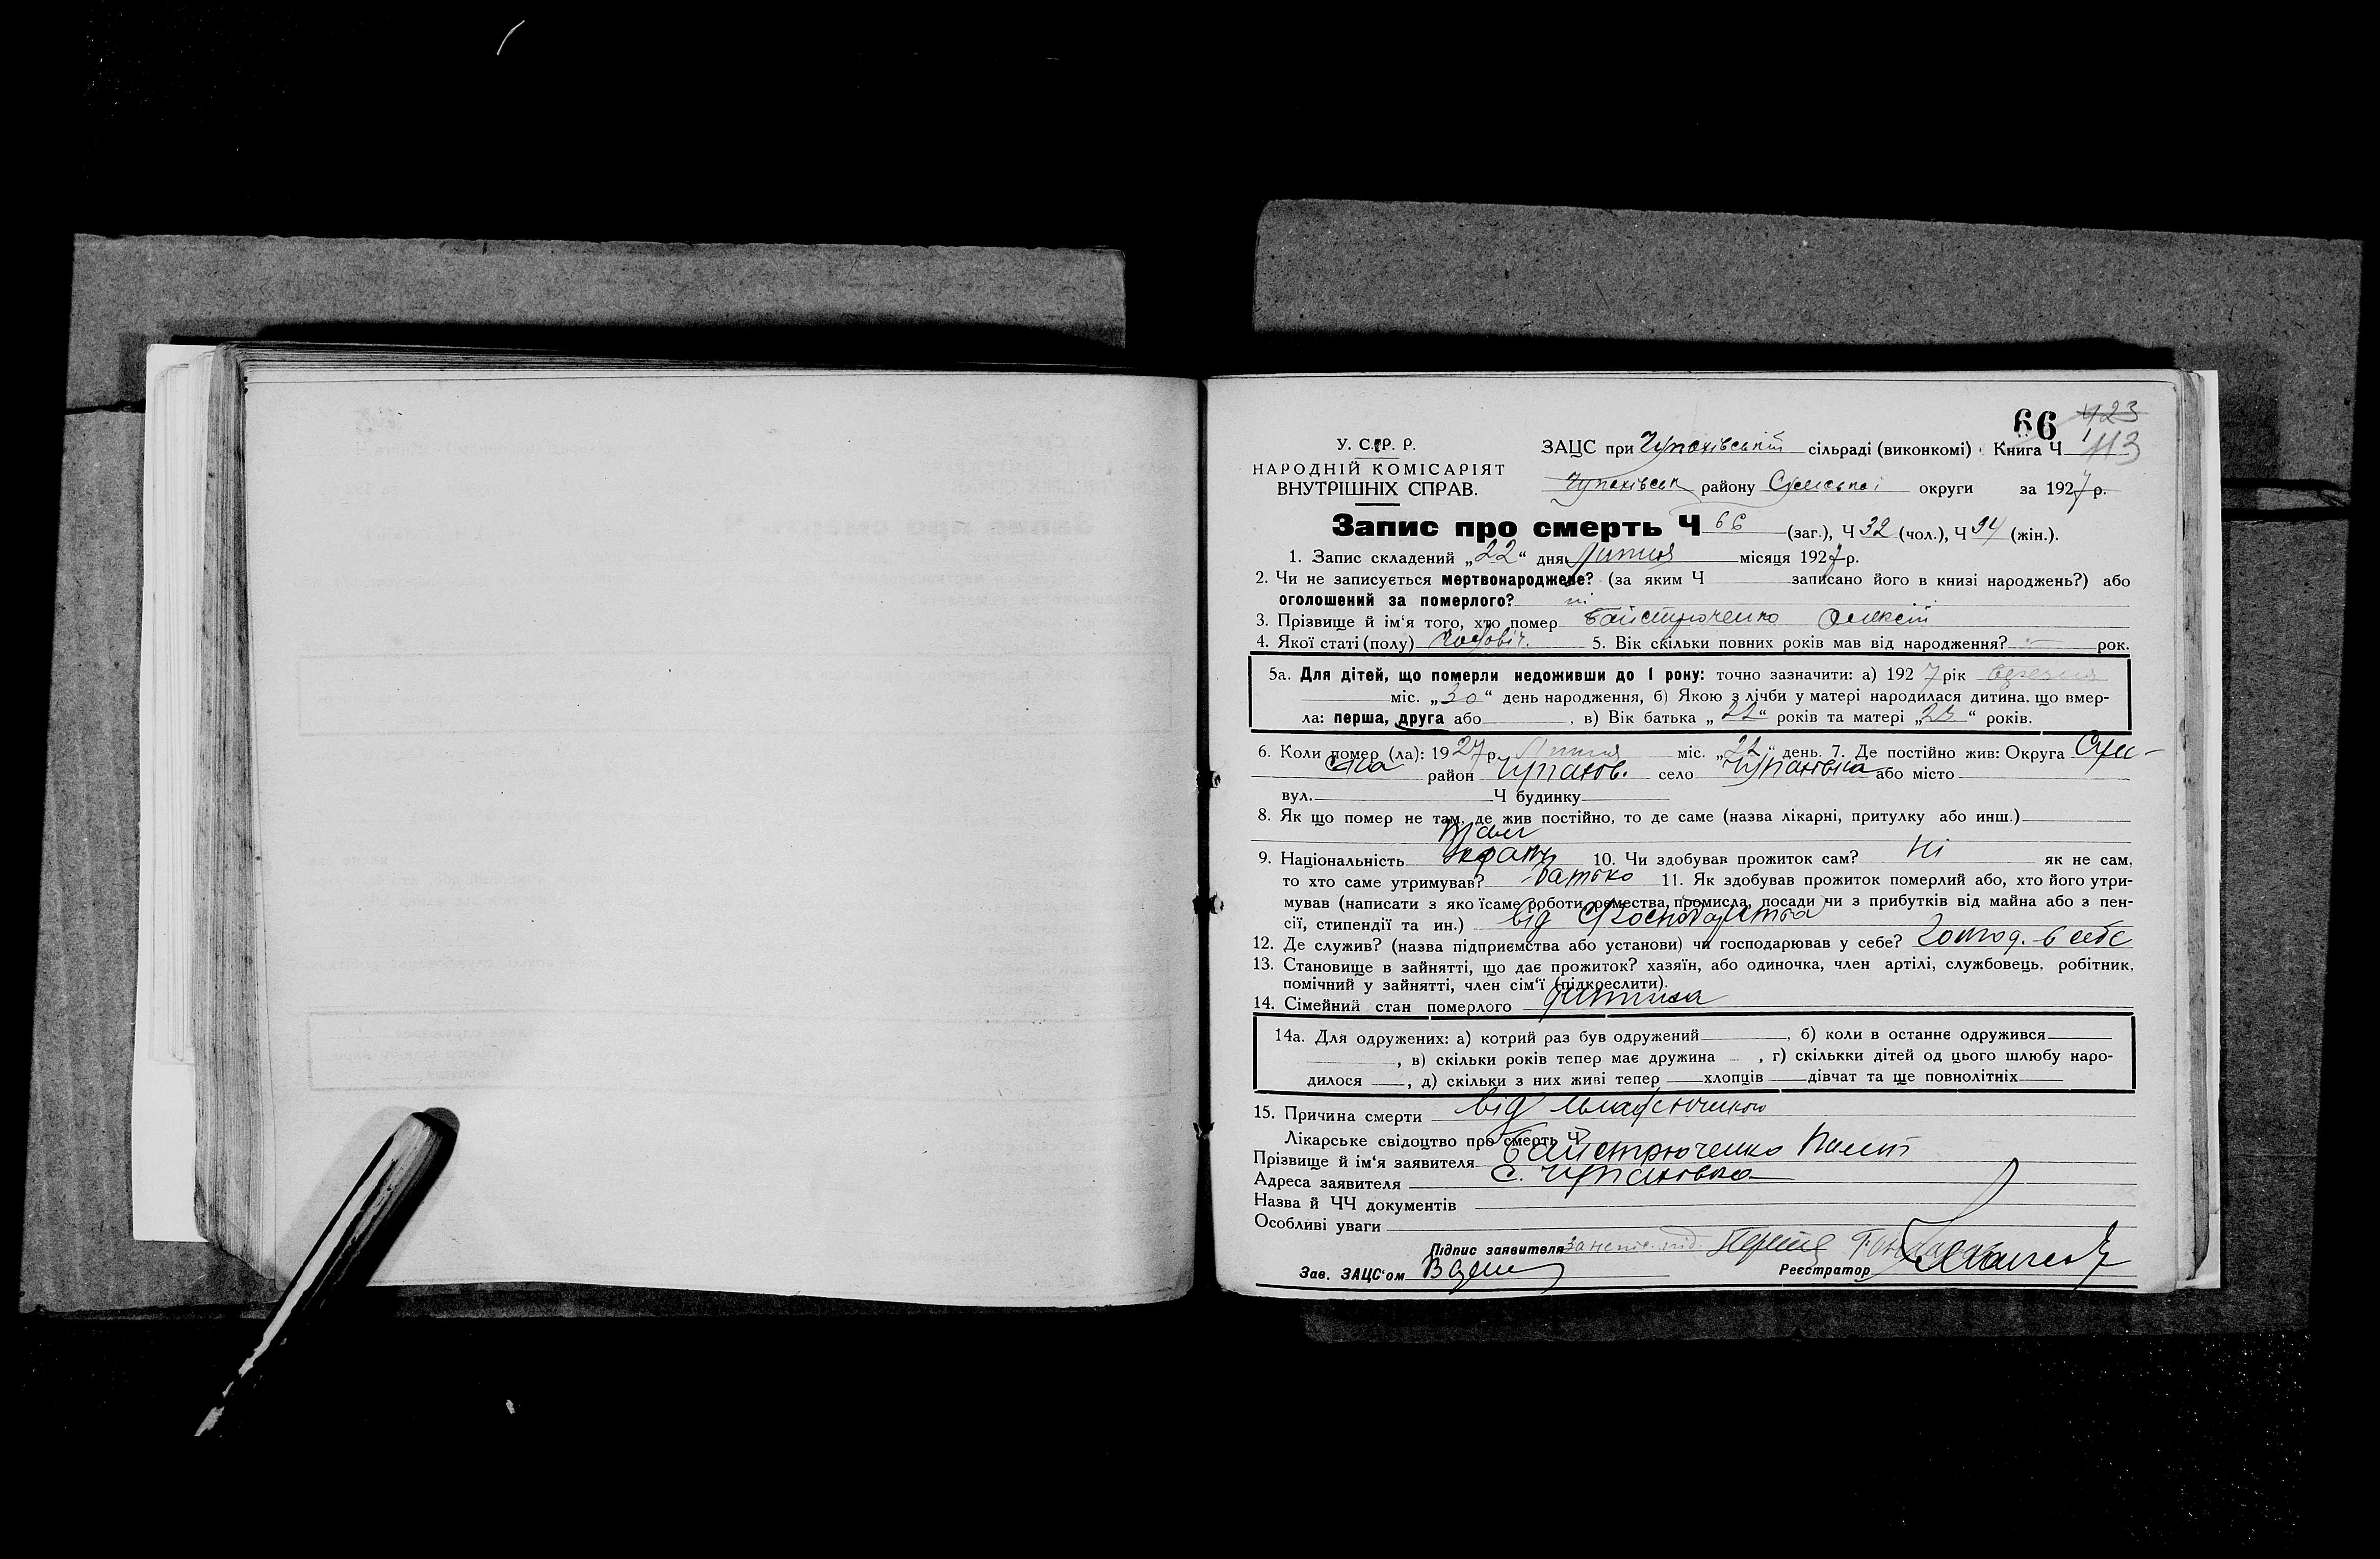 66 423
У. С. Р. Р. ЗАЦС при Чупахівській сільраді (виконкомі) Книга Ч 113
НАРОДНІЙ КОМІСАРІЯТ
ВНУТРІШНІХ СПРАВ. Чупахівськ району Сумської округи за 1927 р.
Запис про смерть Ч 66 (заг.), Ч 32 (чол.), Ч 34 (жін.).
1. Запис складений „22“ дня Липня місяця 1927 р.
2. Чи не записується мертвонароджене? (за яким Ч записано його в книзі народжень?) або
оголошений за померлого? ні
3. Прізвище й ім‘я того, хто помер Байстрюченко Олексій
4. Якої статі (полу) чоловіч. 5. Вік скільки повних років мав від народження? — рок.
5а. Для дітей, що померли недоживши до 1 року: точно зазначити: а) 1927 рік березня
міс. „30“ день народження, б) Якою з лічби у матері народилася дитина, що вмер-
ла: перша, друга або , в) Вік батька „22“ років та матері „23“ років.
6. Коли помер (ла): 1927 р. Липня міс. „22“ день. 7. Де постійно жив: Округа Сум-
ська район Чупахов. село Чупахівка або місто
вул. Ч будинку
8. Як що помер не там, де жив постійно, то де саме (назва лікарні, притулку або инш.)
там
9. Національність 10. Чи здобував прожиток сам? Ні як не сам,
то хто саме утримував? батько 11. Як здобував прожиток померлий або, хто його утри-
мував (написати з яко їсаме роботи, ремества, промисла, посади чи з прибутків від майна або з пен-
сії, стипендії та ин.) від господарства
12. Де служив? (назва підприємства або установи) чи господарював у себе? господ. в себе
13. Становище в зайнятті, що дає прожиток? хазяїн, або одиночка, член артілі, службовець, робітник,
помічний у зайнятті, член сім‘ї (підкреслити).
14. Сімейний стан померлого дитина
14а. Для одружених: а) котрий раз був одружений , б) коли в останнє одружився
, в) скільки років тепер має дружина — , г) скількки дітей од цього шлюбу наро-
дилося , д) скільки з них живі тепер хлопців дівчат та ще повнолітніх
15. Причина смерти від
Лікарське свідоцтво про смерть Ч
Прізвище й ім‘я заявителя Байстрюченко
Адреса заявителя с. Чупахівка
Назва й ЧЧ документів
Особливі уваги
Підпис заявителя
Зав. ЗАЦС‘ом Реєстратор